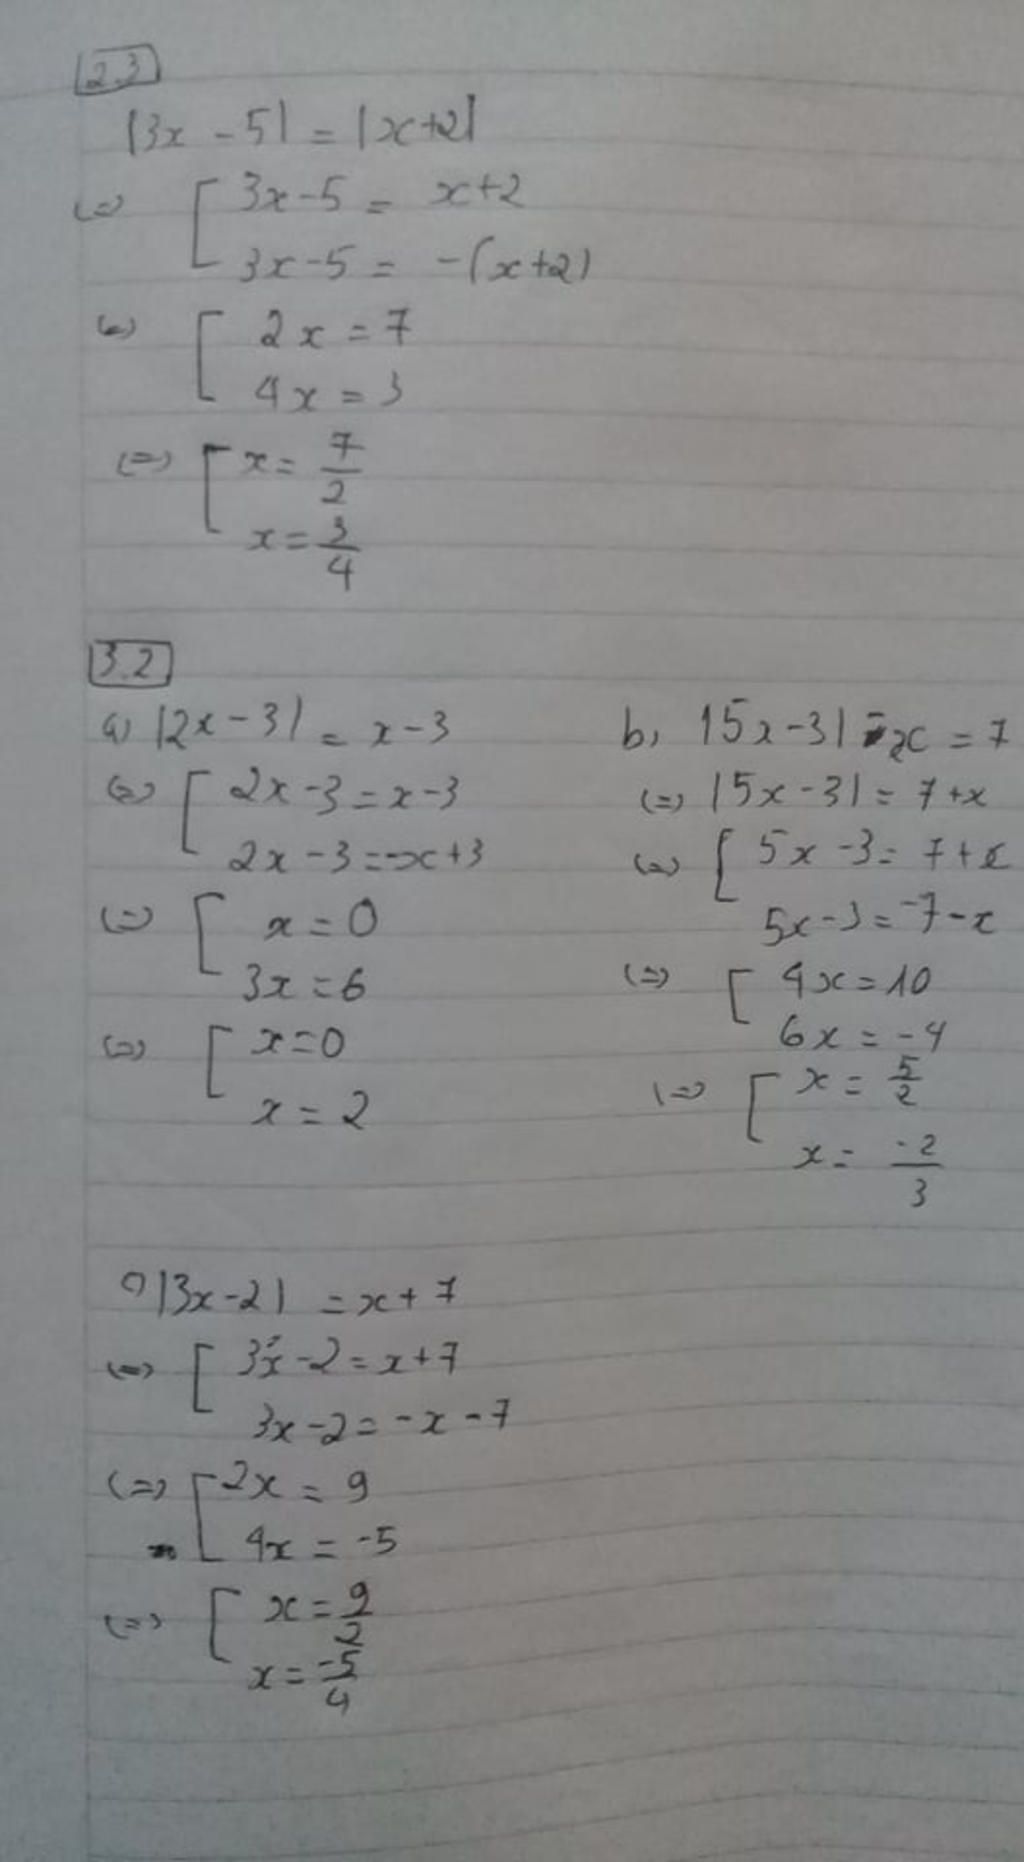 2.3
|3x - 5| = |x+2|
(=) [ 3x-5 = x+2
3x-5 = -(x+2)
(=) [ 2x = 7
4x = 3
(=) [ x = 7/2
x = 3/4
3.2
a) |2x-3| = x-3
(=) [ 2x-3 = x-3
2x-3 = -x+3
(=) [ x = 0
3x = 6
(=) [ x = 0
x = 2
b, |5x-3| - x = 7
(=) |5x-3| = 7+x
(=) [ 5x-3 = 7+x
5x-3 = -7-x
(=) [ 4x = 10
6x = -4
(=) [ x = 5/2
x = -2/3
c) |3x-2| = x+7
(=) [ 3x-2 = x+7
3x-2 = -x-7
(=) [ 2x = 9
4x = -5
(=) [ x = 9/2
x = -5/4